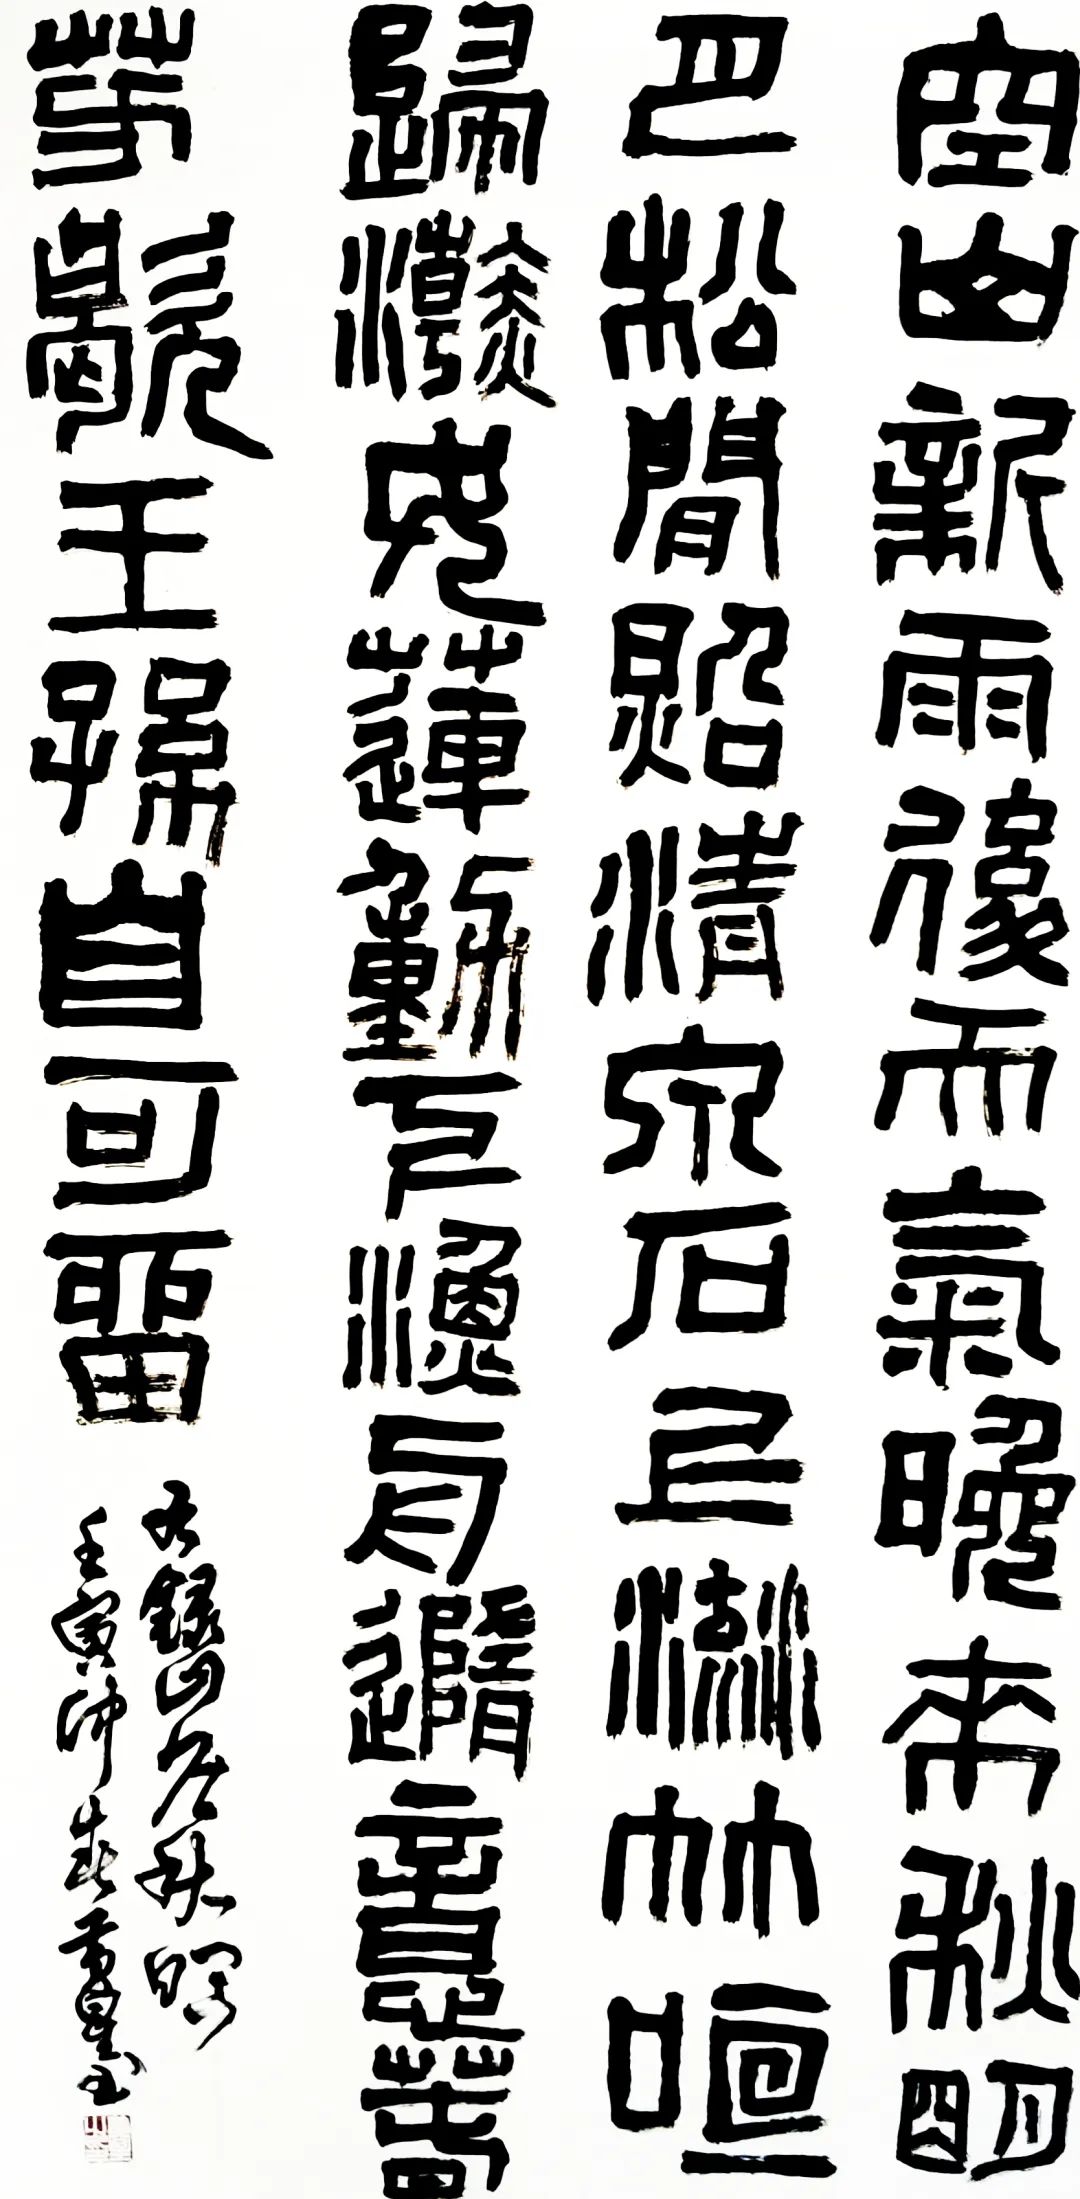 空山新雨後天氣晚來秋明
月松間照清泉石上流竹喧
歸浣女蓮動下漁舟隨意春
芳歇王孫自可留
右錄山居秋暝
壬寅仲春黃